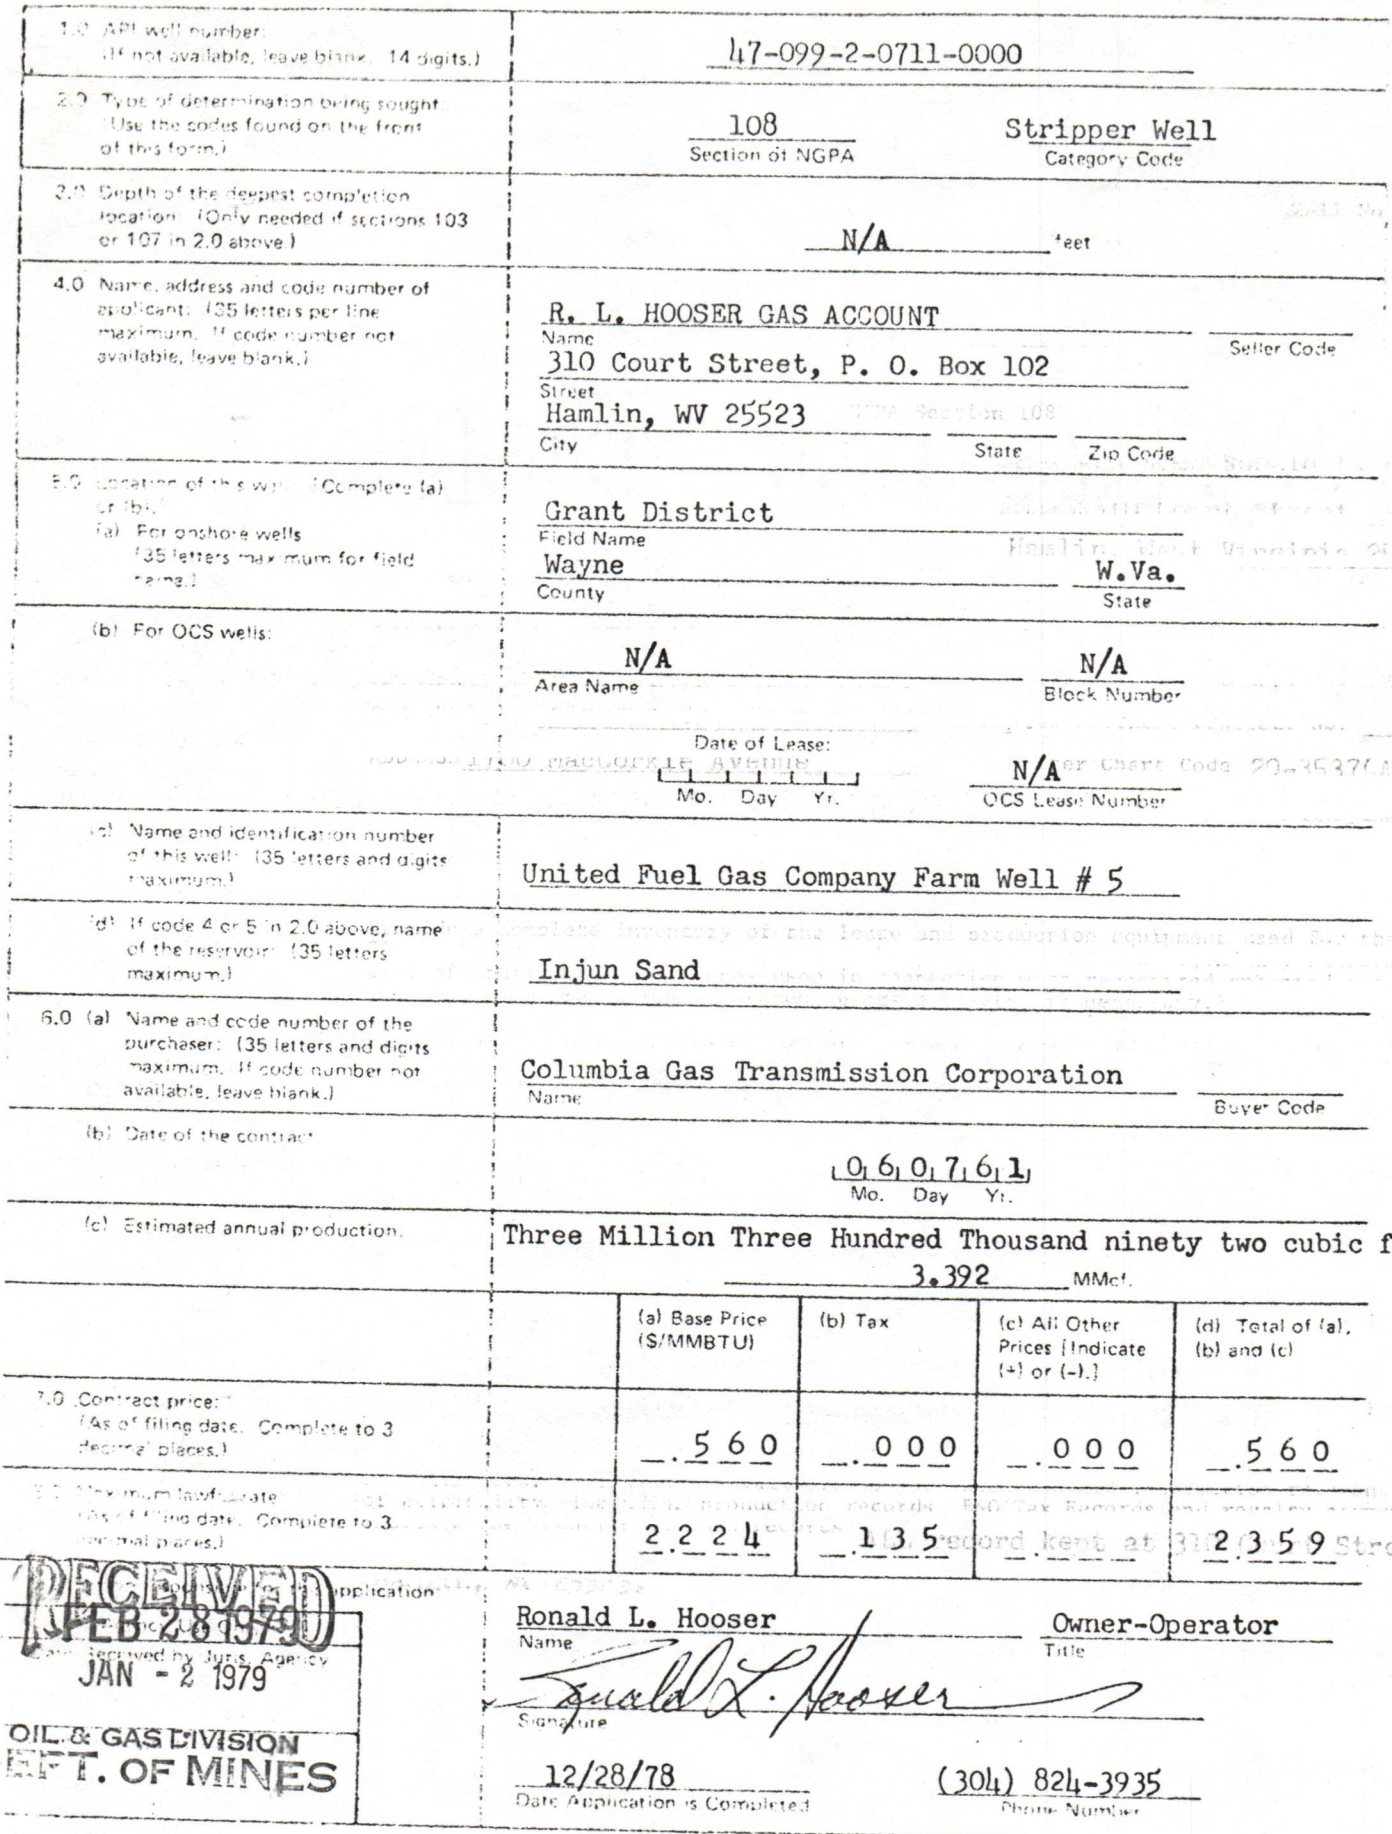 1.0 API well number:
(If not available, leave blank. 14 digits.)
47-099-2-0711-0000
2.0 Type of determination being sought
(Use the codes found on the front
of this form.)
108
Section of NGPA
Stripper Well
Category Code
3.0 Depth of the deepest completion
location: (Only needed if sections 103
or 107 in 2.0 above.)
N/A feet
4.0 Name, address and code number of
applicant: (35 letters per line
maximum. If code number not
available, leave blank.)
R. L. HOOSER GAS ACCOUNT
Name
Seller Code
310 Court Street, P. O. Box 102
Street
Hamlin, WV 25523
City State Zip Code
NGPA Section 108
5.0 Location of this well: (Complete (a)
or (b).)
(a) For onshore wells
(35 letters maximum for field
name.)
Grant District
Field Name
Wayne W.Va.
County State
Hamlin, West Virginia
(b) For OCS wells:
N/A N/A
Area Name Block Number
Date of Lease:
Mo. Day Yr.
N/A
OCS Lease Number
1700 MacCorkle Avenue
Chart Code
(c) Name and identification number
of this well: (35 letters and digits
maximum.)
United Fuel Gas Company Farm Well # 5
(d) If code 4 or 5 in 2.0 above, name
of the reservoir: (35 letters
maximum.)
Injun Sand
complete inventory of the lease and production equipment used for
6.0 (a) Name and code number of the
purchaser: (35 letters and digits
maximum. If code number not
available, leave blank.)
Columbia Gas Transmission Corporation
Name Buyer Code
(b) Date of the contract
060761
Mo. Day Yr.
(c) Estimated annual production.
Three Million Three Hundred Thousand ninety two cubic f
3.392 MMcf.
(a) Base Price
($/MMBTU)
(b) Tax
(c) All Other
Prices [Indicate
(+) or (-).]
(d) Total of (a),
(b) and (c)
7.0 Contract price:
(As of filing date. Complete to 3
decimal places.)
.560 .000 .000 .560
8.0 Maximum lawful rate
(As of filing date. Complete to 3
decimal places.)
2.224 .135 . 2.359
production records
Tax Records and
record kept at 310 Court Stre
application
RECEIVED
FEB 28 1979
Date Received by Juris. Agency
JAN - 2 1979
OIL & GAS DIVISION
EPT. OF MINES
Ronald L. Hooser Owner-Operator
Name Title
Ronald L. Hooser
Signature
12/28/78 (304) 824-3935
Date Application is Completed Phone Number